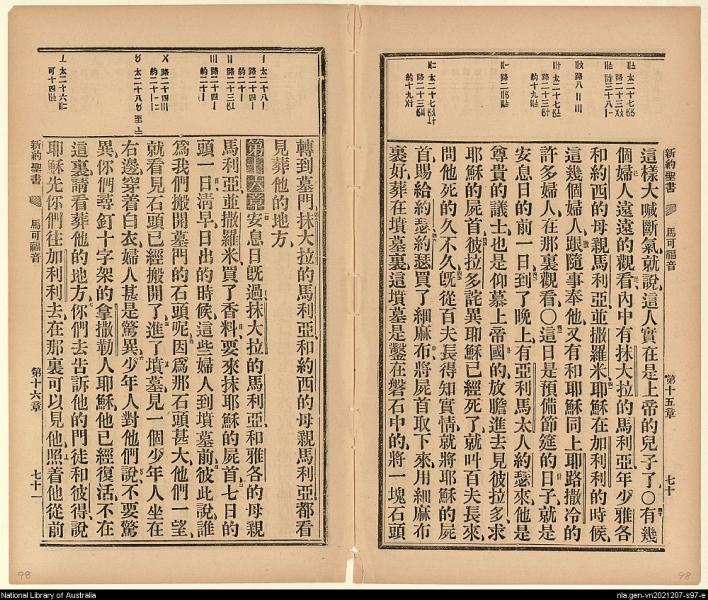 新約聖書
馬可福音
第十五章
七十
這樣大喊斷氣就說這人實在是上帝的兒子了○有幾
個婦人遠遠的觀看內中有抹大拉的馬利亞年少雅各
和約西的母親馬利亞並撒羅米耶穌在加利利的時候
這幾個婦人跟隨事奉他又有和耶穌同上耶路撒冷的
許多婦人在那裏觀看○這日是預備節筵的日子就是
安息日的前一日到了晚上有亞利馬太人約瑟來他是
尊貴的議士也是仰慕上帝國的放膽進去見彼拉多求
耶穌的屍首彼拉多詫異耶穌已經死了就呌百夫長來
問他死的久不久旣從百夫長得知實情就將耶穌的屍
首賜給約瑟約瑟買了細麻布將屍首取下來用細麻布
裹好葬在墳墓裏這墳墓是鑿在磐石中的將一塊石頭
轉到墓門抹大拉的馬利亞和約西的母親馬利亞都看
見葬他的地方
第十六章安息日旣過抹大拉的馬利亞和雅各的母親
馬利亞並撒羅米買了香料要來抹耶穌的屍首七日的
頭一日清早日出的時候這些婦人到墳墓前彼此說誰
爲我們搬開墓門的石頭呢因爲那石頭甚大他們一望
就看見石頭已經搬開了進了墳墓見一個少年人坐在
右邊穿着白衣婦人甚是驚異少年人對他們說不要驚
異你們尋釘十字架的拿撒勒人耶穌他已經復活不在
這裏請看葬他的地方你們去告訴他的門徒和彼得說
耶穌先你們往加利利去在那裏可以見他照着他從前
新約聖書
馬可福音
第十六章
七十一
98
98
National Library of Australia
nla.gen-vn2021207-s97-e